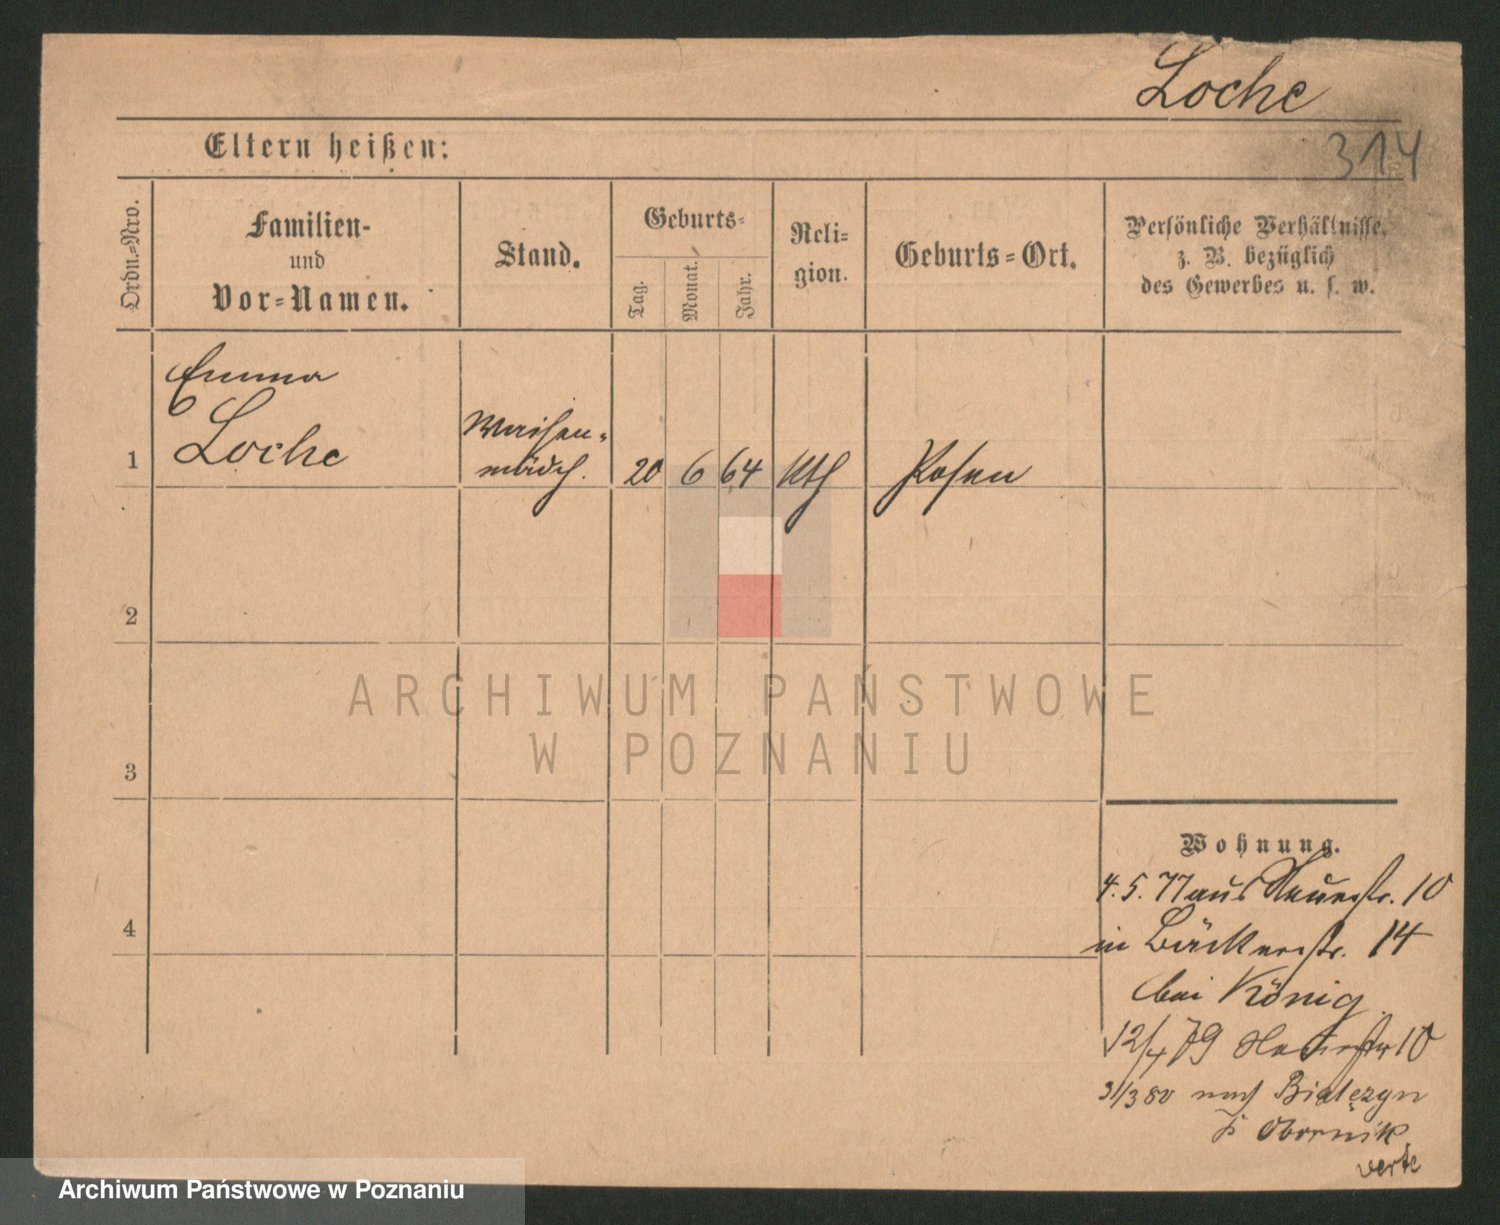 Loche
314
Eltern heißen:
Ordn.-Nro.
Familien-
und
Vor-Namen.
Stand.
Geburts-
Tag.
Monat.
Jahr.
Reli-
gion.
Geburts-Ort.
Persönliche Verhältnisse,
z. B. bezüglich
des Gewerbes u. s. w.
Emma
Loche
Waisen-
mädch.
1
20 6 64 kth Posen
2
3
4
ARCHIWUM PAŃSTWOWE
W POZNANIU
Wohnung.
4.5.77 aus Neuestr. 10
in Bäckerstr. 14
bei König
12/4 79 10
31/3 80 nach
Obornik
verte
Archiwum Państwowe w Poznaniu